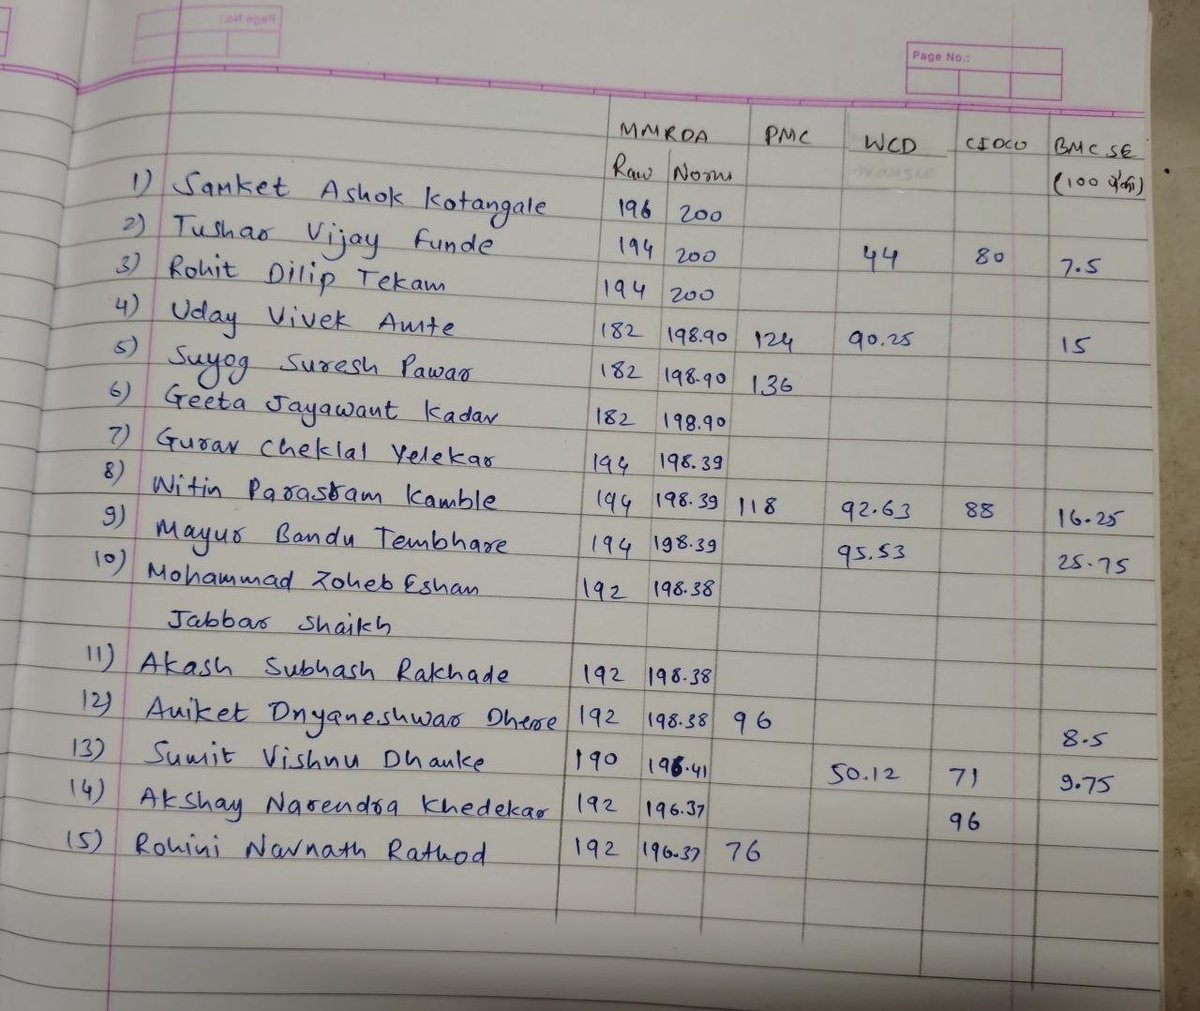 Page No.:
MMRDA PMC WCD CIDCO BMC SE
Raw Norm (100 पैकी)
1) Sanket Ashok Kotangale 196 200
2) Tushar Vijay Funde 194 200 44 80 7.5
3) Rohit Dilip Tekam 194 200
4) Uday Vivek Amte 182 198.90 124 90.25 15
5) Suyog Suresh Pawar 182 198.90 136
6) Geeta Jayawant Kadav 182 198.90
7) Gurav Cheklal Yelekar 194 198.39
8) Nitin Parasram Kamble 194 198.39 118 92.63 88 16.25
9) Mayur Bandu Tembhare 194 198.39 95.53 25.75
10) Mohammad Zoheb Eshan 192 198.38
Jabbar Shaikh
11) Akash Subhash Rakhade 192 198.38
12) Aniket Dnyaneshwar Dhere 192 198.38 96 8.5
13) Sumit Vishnu Dhanke 190 196.41 50.12 71 9.75
14) Akshay Narendra Khedekar 192 196.37 96
15) Rohini Navnath Rathod 192 196.37 76